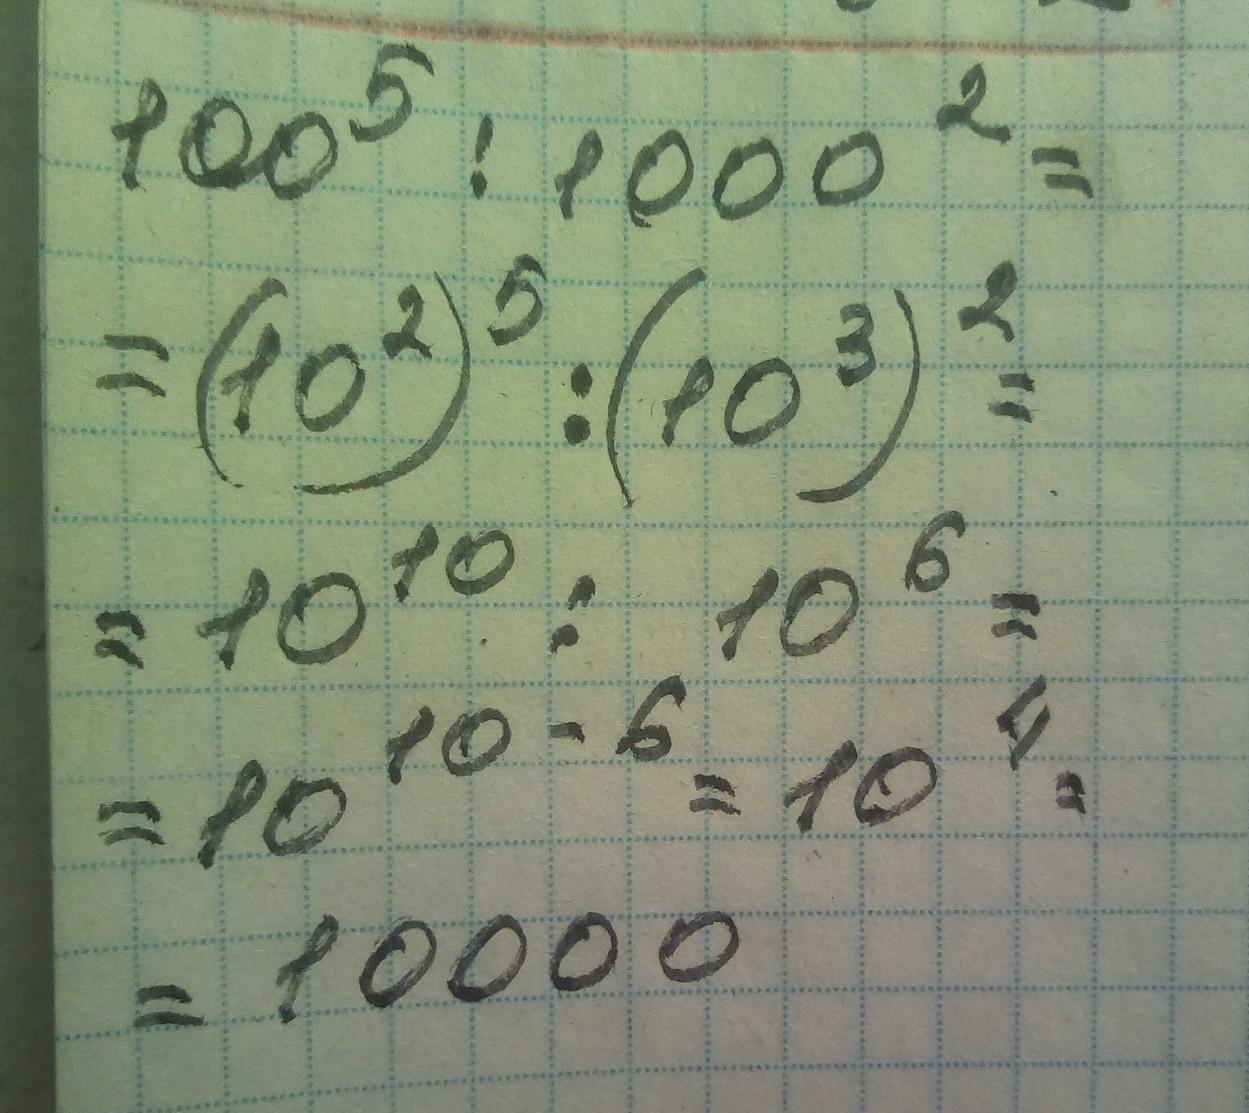 100⁵ : 1000² =
= (10²)⁵ : (10³)² =
= 10¹⁰ : 10⁶ =
= 10¹⁰⁻⁶ = 10⁴ =
= 10000